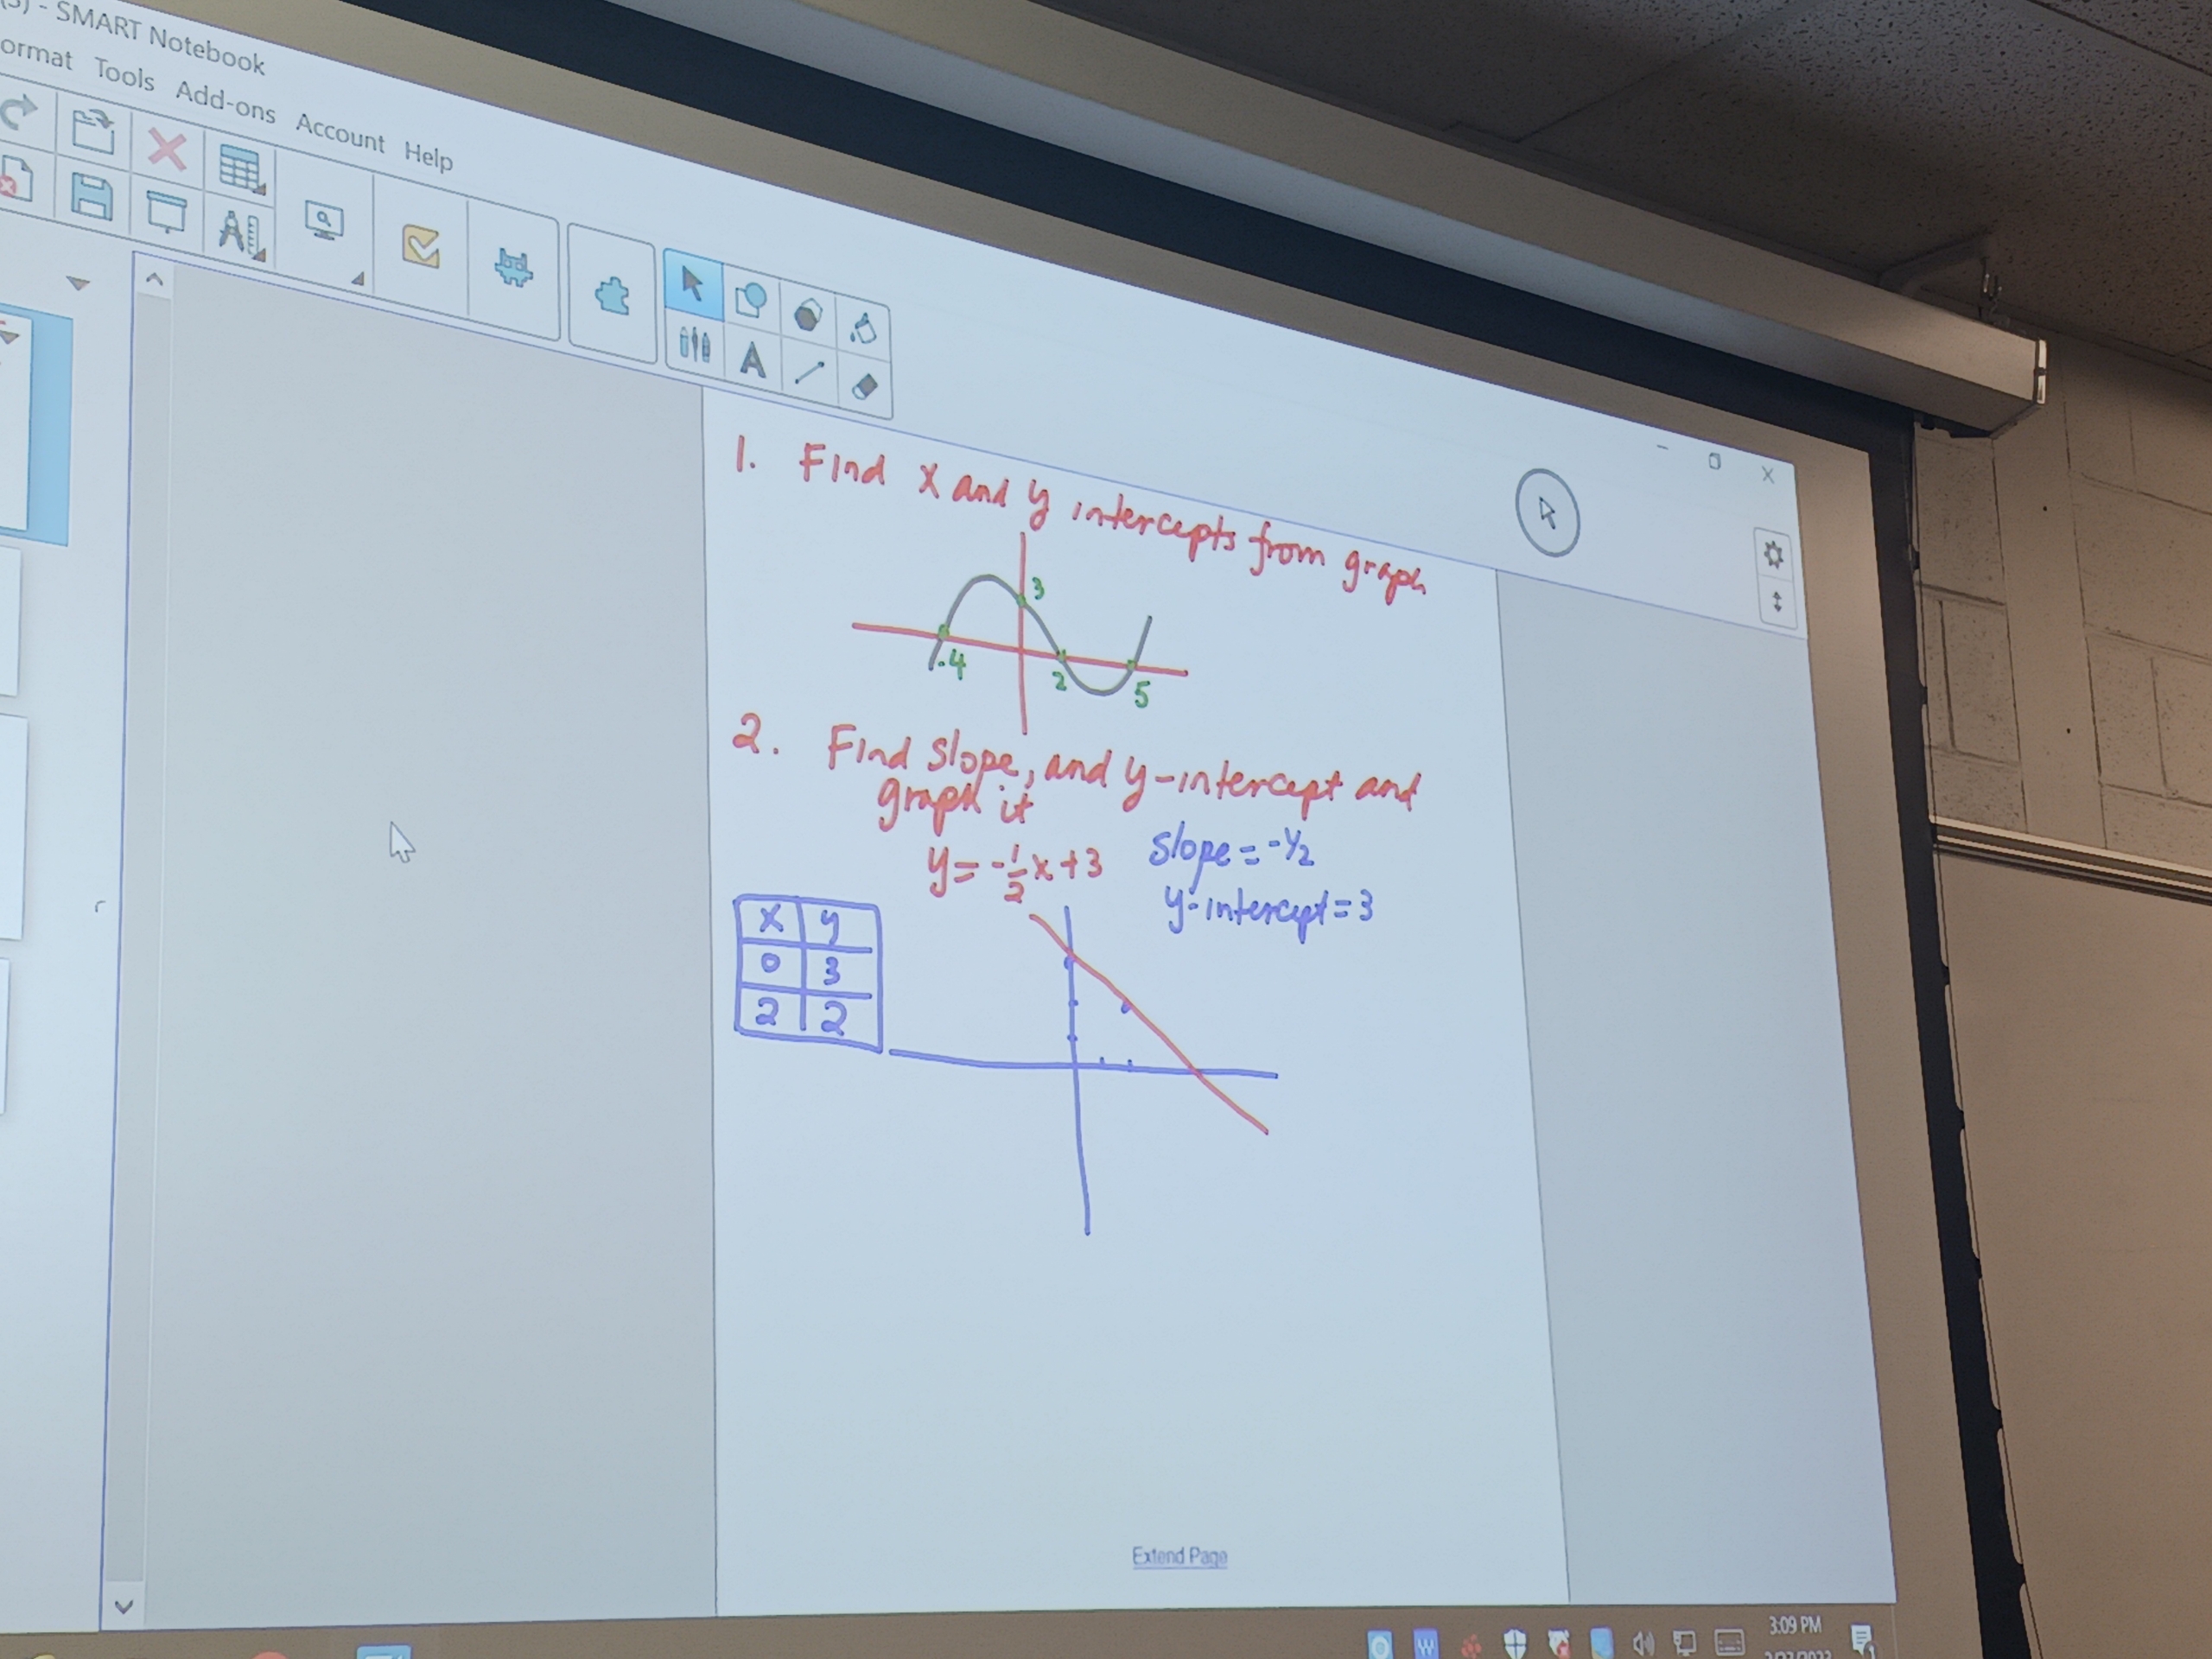 - SMART Notebook
ormat Tools Add-ons Account Help
A
1. Find x and y intercepts from graph
3
-4
2
5
2. Find slope, and y-intercept and
graph it
y = -1/2 x + 3
slope = -1/2
y-intercept = 3
x y
0 3
2 2
Extend Page
3:09 PM